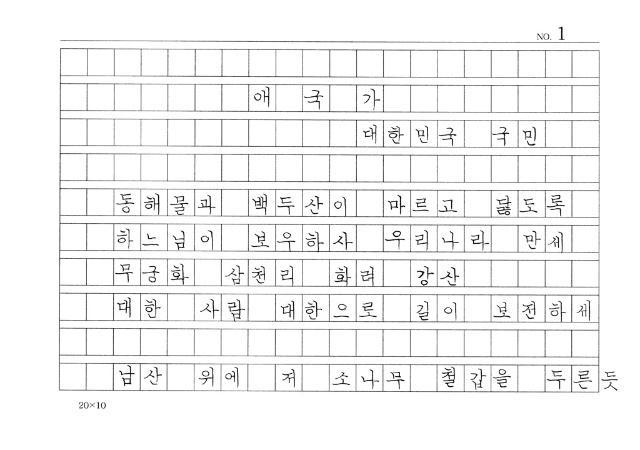 NO. 1
애 국 가
대한민국 국민
동해물과 백두산이 마르고 닳도록
하느님이 보우하사 우리나라 만세
무궁화 삼천리 화려 강산
대한 사람 대한으로 길이 보전하세
남산 위에 저 소나무 철갑을 두른듯
20×10